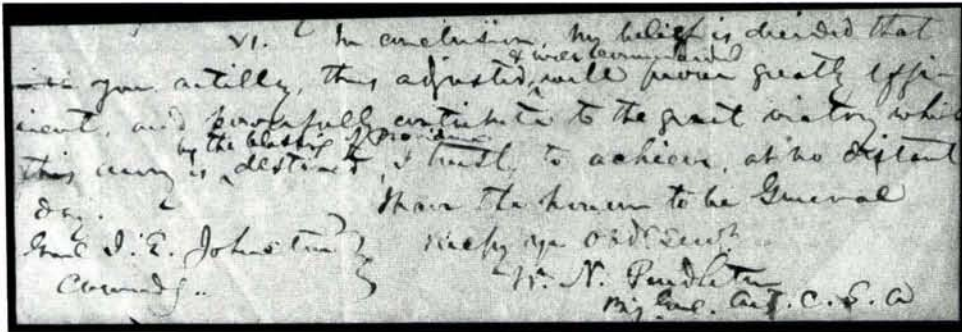 VI. In conclusion, my belief is decided that
your artillery, thus adjusted, & well commanded will prove greatly effi-
cient, and powerfully contribute to the great victory which
this army is by the blessing of Providence destined, I trust, to achieve, at no distant
day.
I have the honor to be General
Genl J. E. Johnston
respy yr obdt servt
Comndg.
W. N. Pendleton
Brig Genl. Art. C. S. A